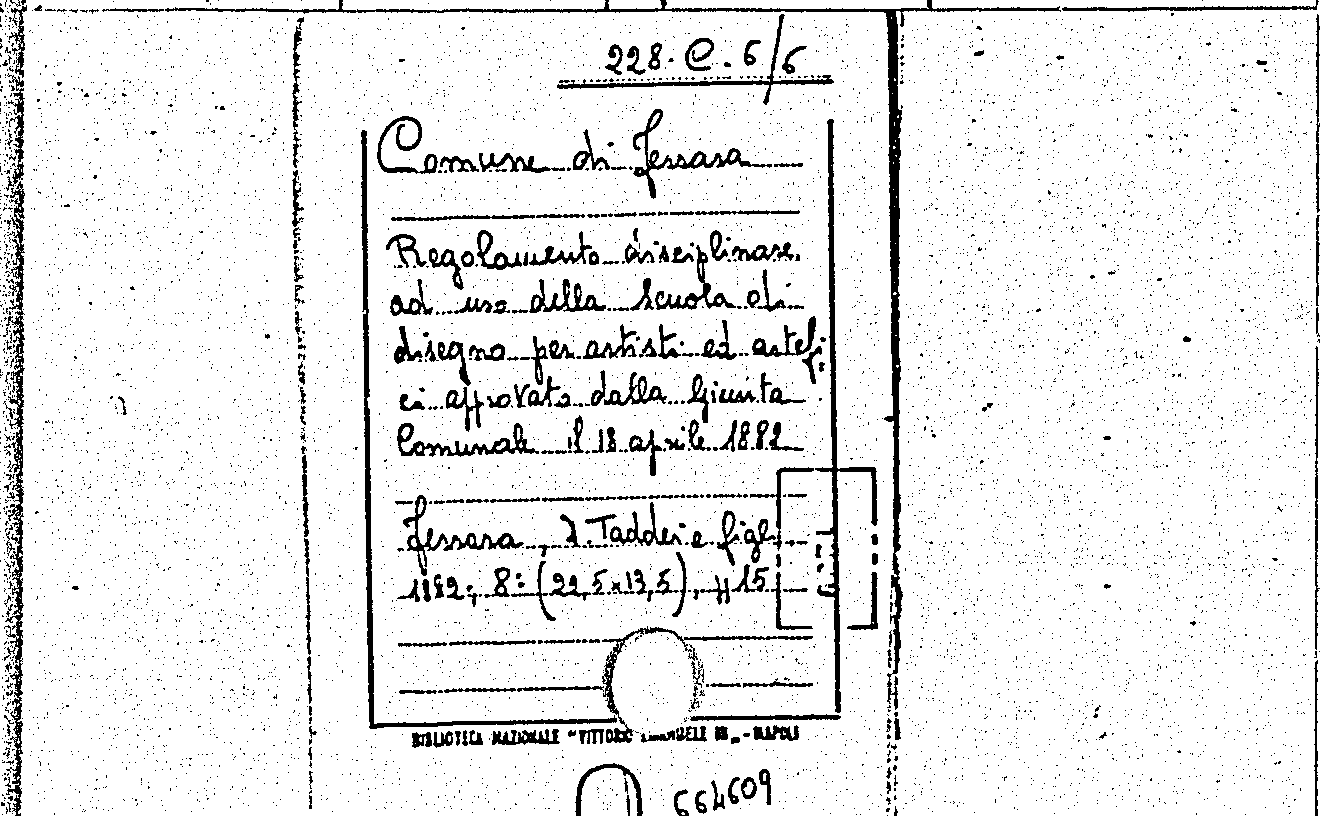 228. C. 6/6
Comune di Ferrara
Regolamento disciplinare
ad uso della Scuola di
disegno per artisti ed artefi:
ci approvato dalla Giunta
Comunale il 18 aprile 1882
Ferrara, D. Taddei e figli
1882, 8º (22,5x13,5), pp 15
BIBLIOTECA NAZIONALE "VITTORIO EMANUELE III" - NAPOLI
664609